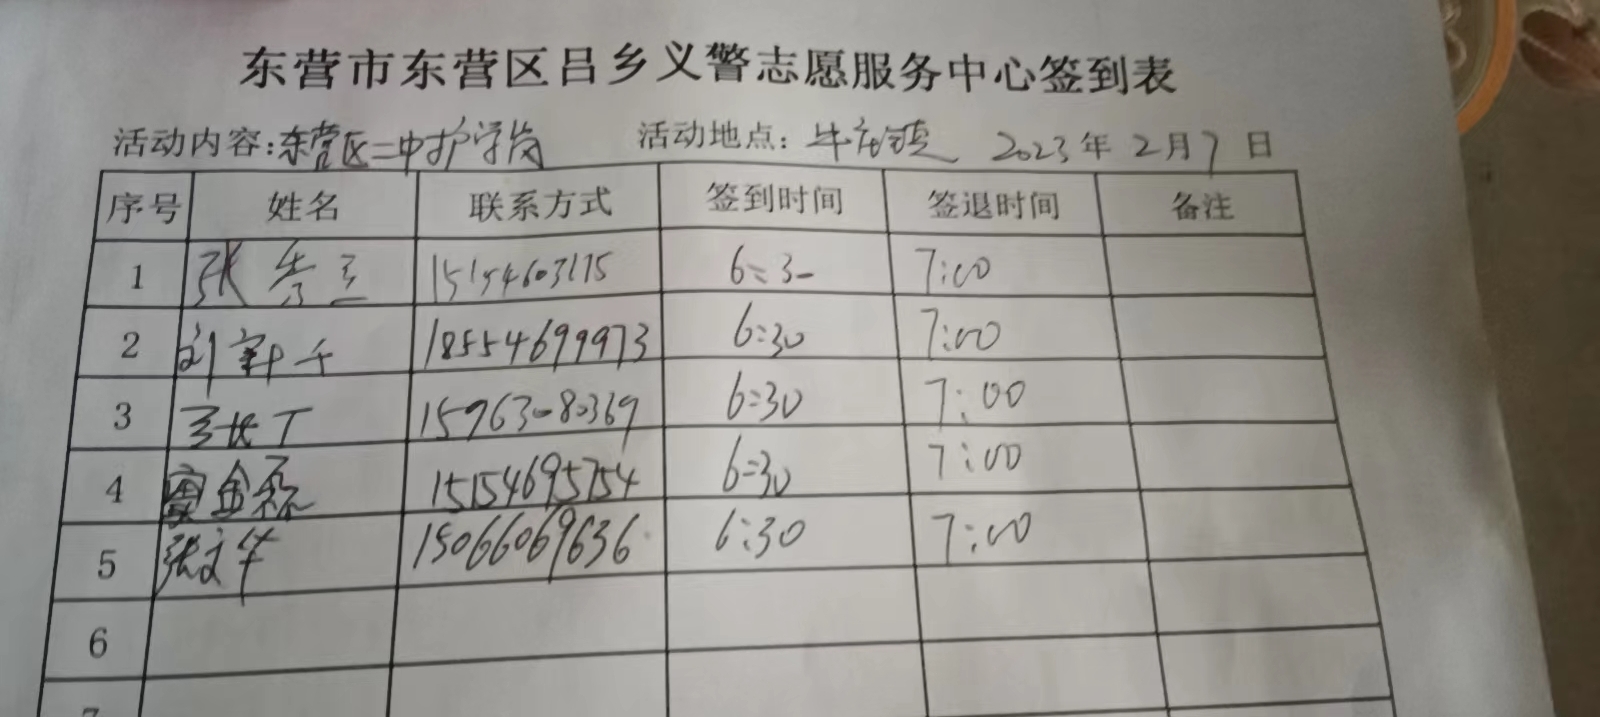 东营市东营区吕乡义警志愿服务中心签到表
活动内容:东营区二中护学岗 活动地点: 牛庄镇 2023年2月7日
序号 姓名 联系方式 签到时间 签退时间 备注
1 张 15154603175 6:30 7:00
2 刘 18554699973 6:30 7:00
3 15963080369 6:30 7:00
4 金 15154695754 6:30 7:00
5 张文华 15066069636 6:30 7:00
6
7